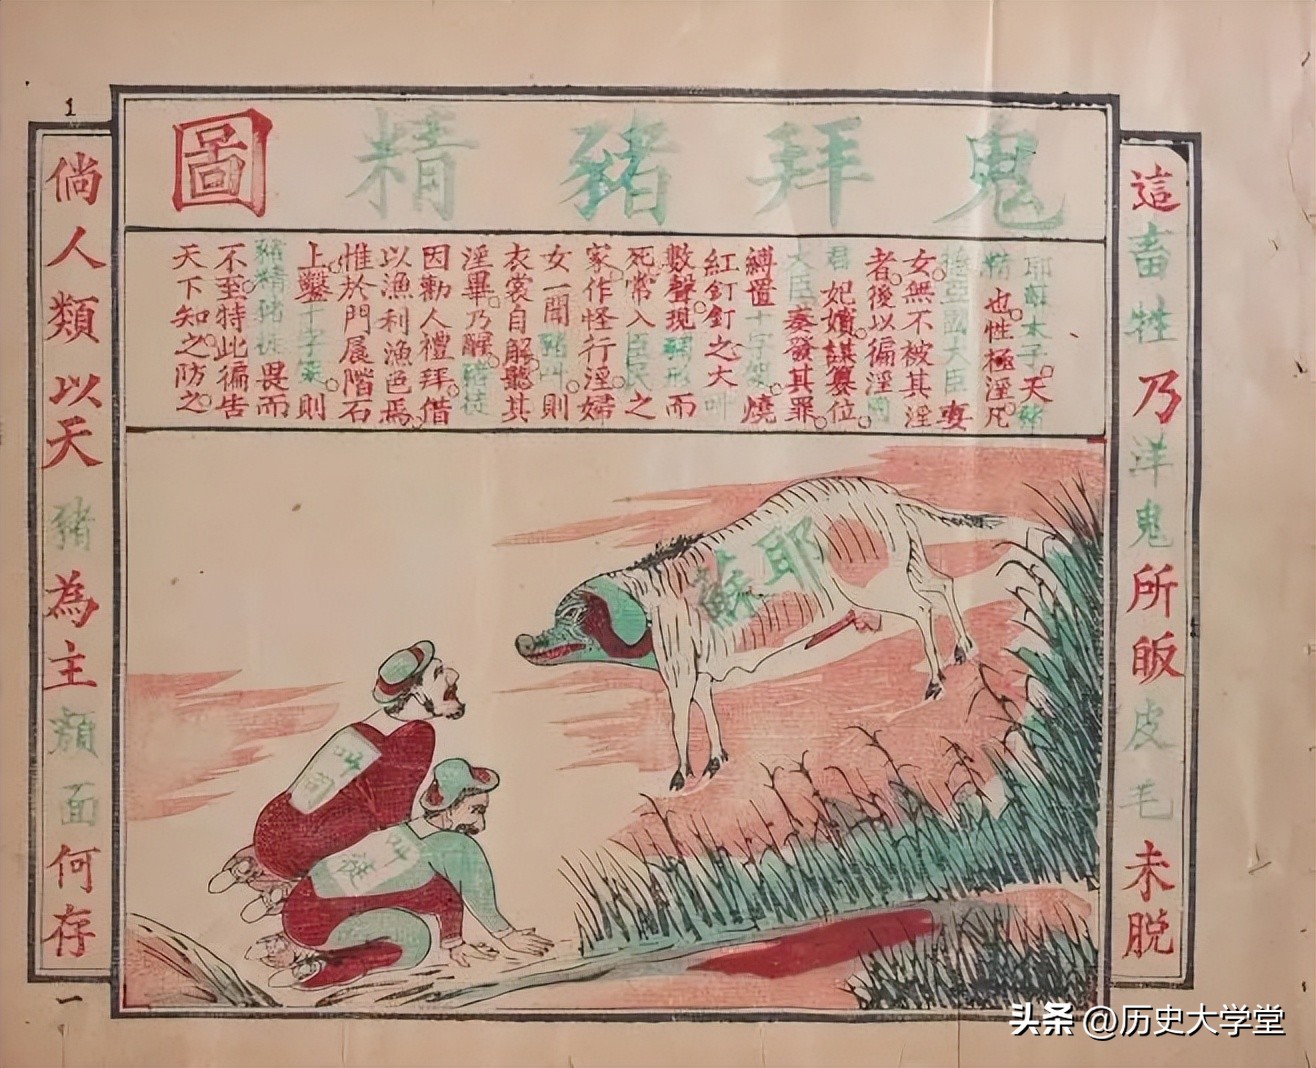 鬼拜豬精圖
這畜牲乃洋鬼所皈皮毛未脱
耶穌太子。天豬
精也。性極淫。凡
亞國大臣妻
女。無不被其淫
者。後以徧淫國
君妃嬪。謀篡位。
大臣奏發其罪。
縛置十字架。燒
紅釘釘之。大叫
數聲。現豬形而
死。常入臣民之
家。作怪行淫。婦
女一聞豬叫。則
衣裳自解。聽其
淫畢。乃醒。豬徒
因勸人禮拜。借
以漁利漁色焉。
惟於門扆階石
上。鑿十字架。則
豬精豬徒畏而
不至。特此徧告
天下知之。防之。
1
倘人類以天豬為主顏面何存
一
耶蘇
叫司
叫徒
头条 @历史大学堂